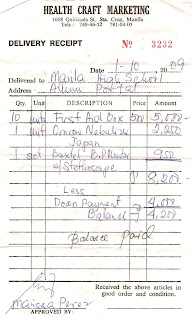 HEALTH CRAFT MARKETING
1608 Quiricada St. Sta. Cruz, Manila
Tel.: 749-46-52 • 781-04-05
DELIVERY RECEIPT № 3232
1-10 09
Delivered to Manila High School
Address Alumni Portal
Qty. Unit DESCRIPTION Price Amount
10 units First Aid Box 500 5,000-
1 unit Omron Nebulizer 2,250
Japan
1 set BP Monitor 950
w/ Stethoscope
₱ 8,200-
Less
Down Payment ₱ 4,000
Balance ₱ 4,200
Balance Paid
Marissa Perez
APPROVED BY:
Received the above articles in
good order and condition.